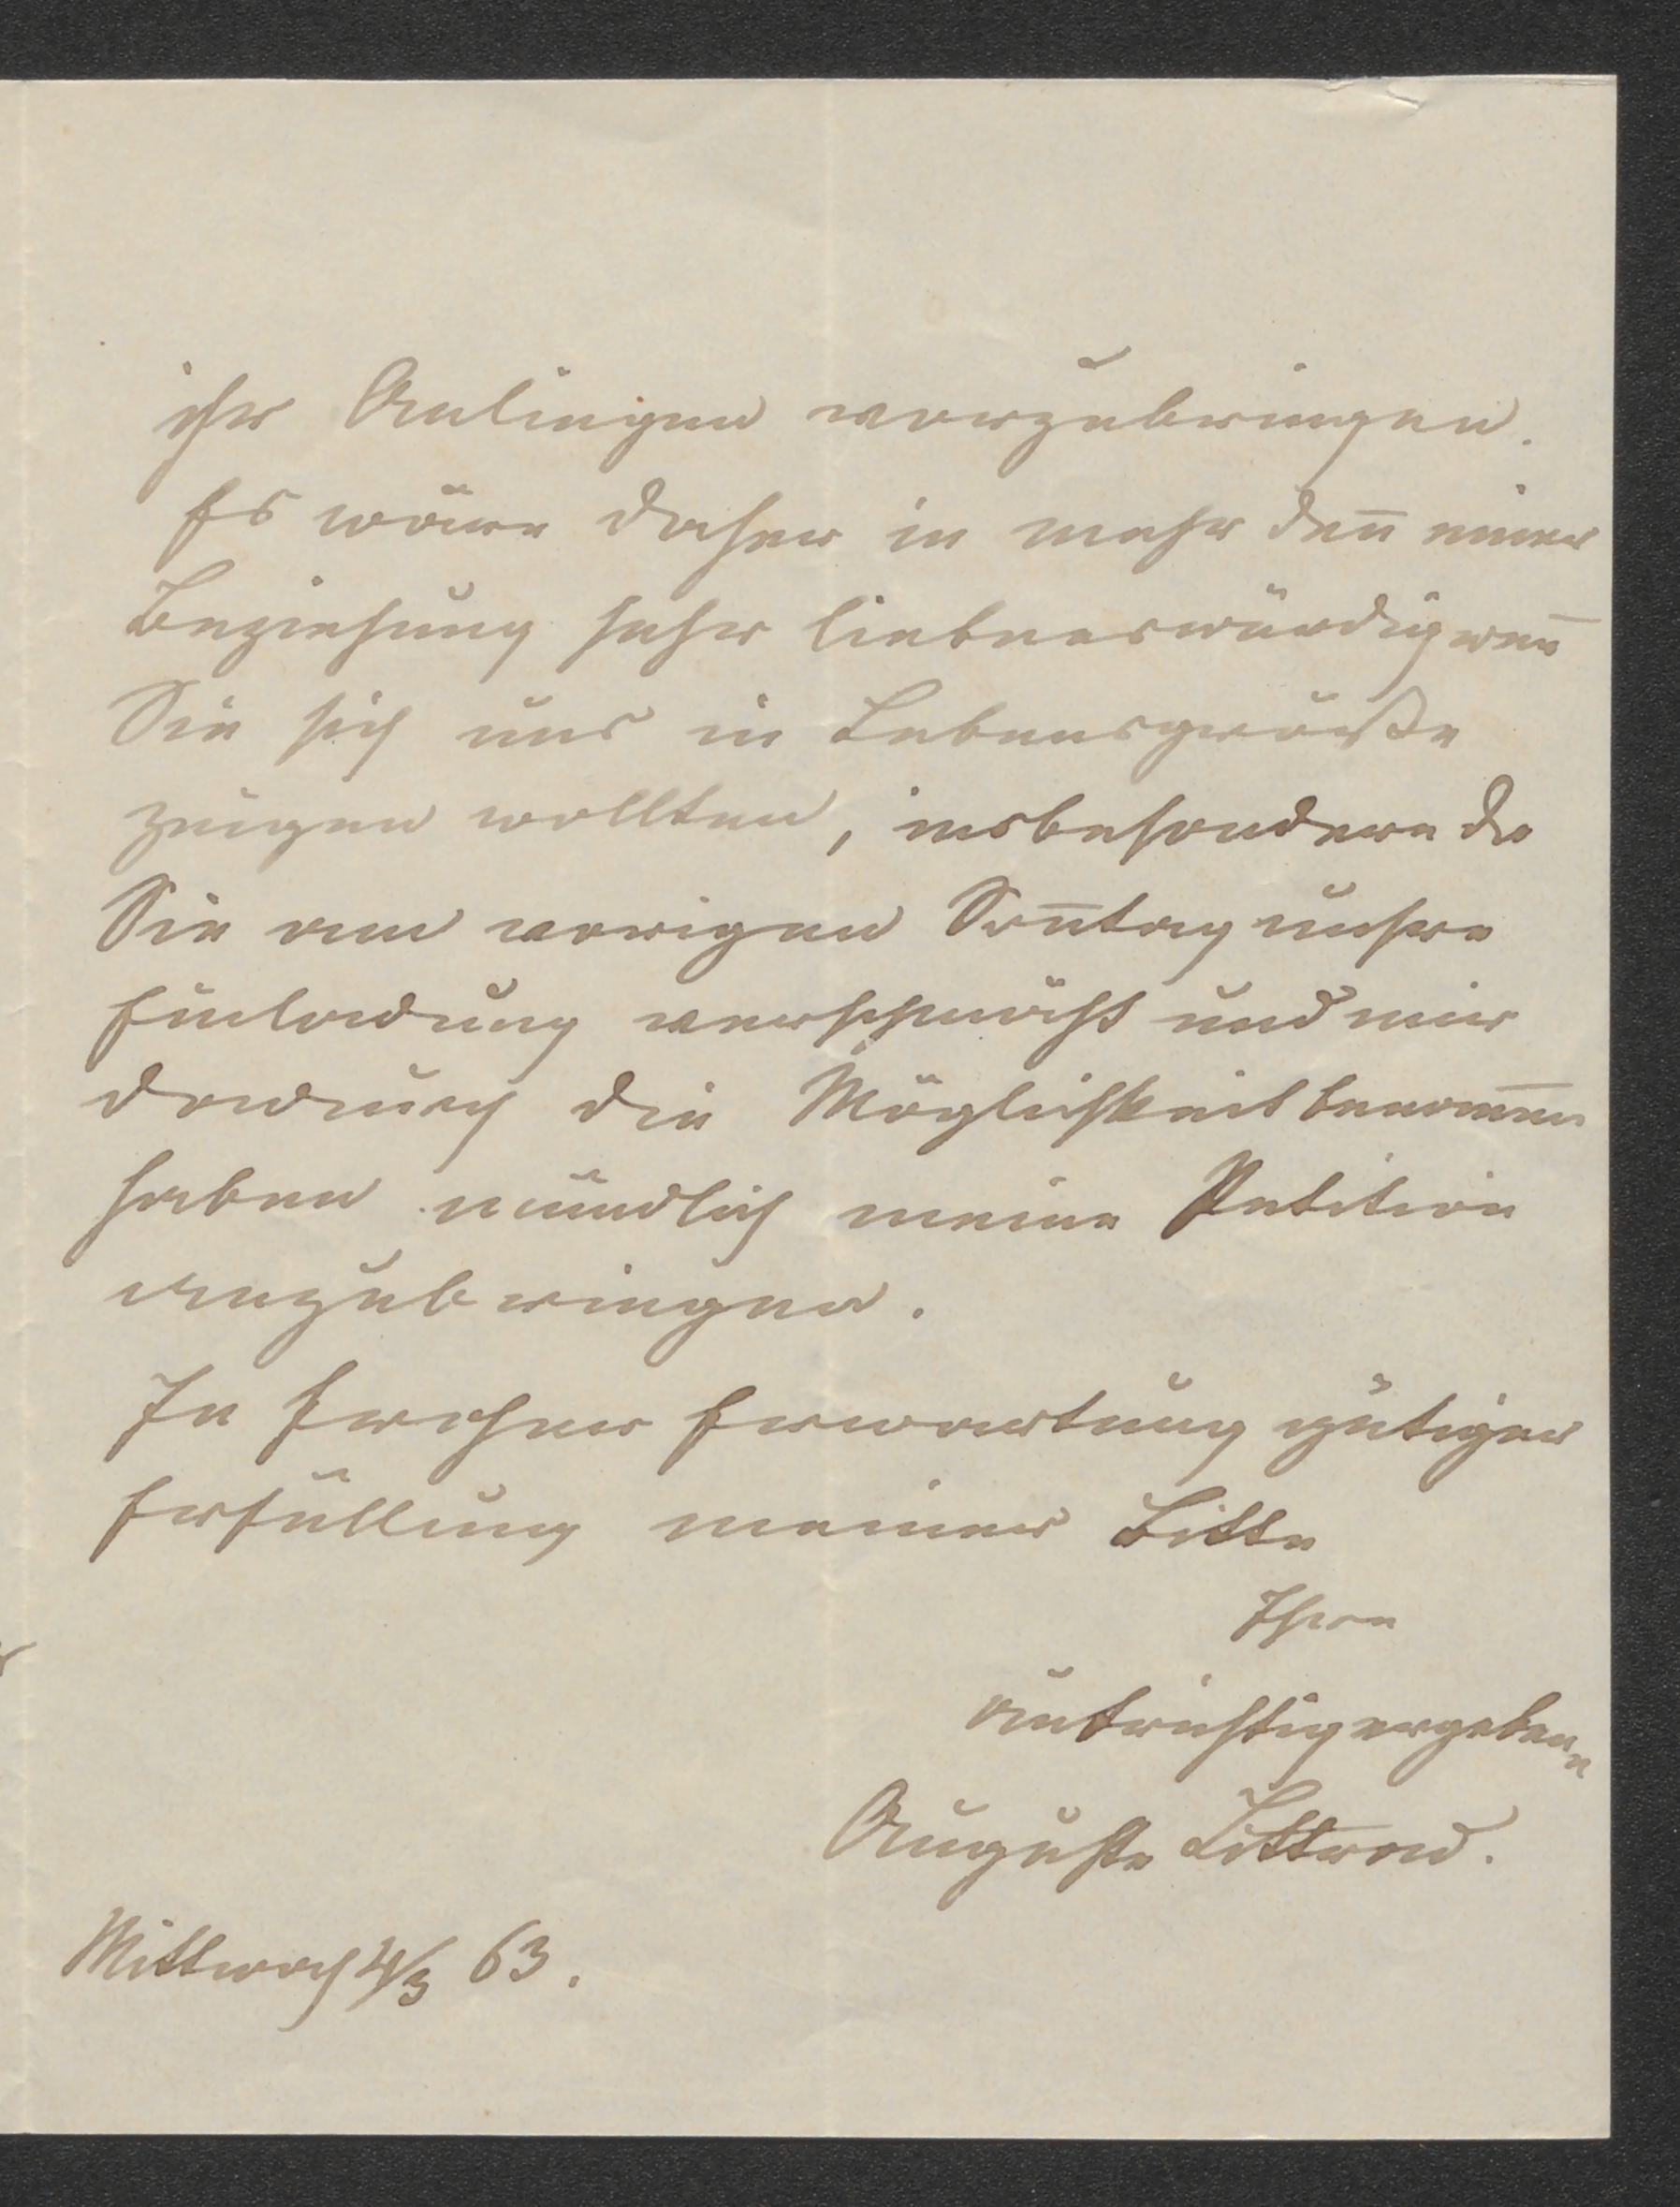 ihr Anliegen vorzubringen.
Es wäre daher in mehr den̅ einer
Beziehung sehr liebenswürdig wen̅
Sie sich uns in Lebensgröße
zeigen wollten, insbesondere da
Sie am vorigen Son̅tag unsre
Einladung verschmäht und mir
dadurch die Möglichkeit benom̅en
haben mündlich meine Petition
anzubringen.
In froher Erwartung gütiger
Erfüllung meiner Bitte
Ihre
aufrichtig ergebene
Auguste Littrow.
Mittwoch 4/3 63.